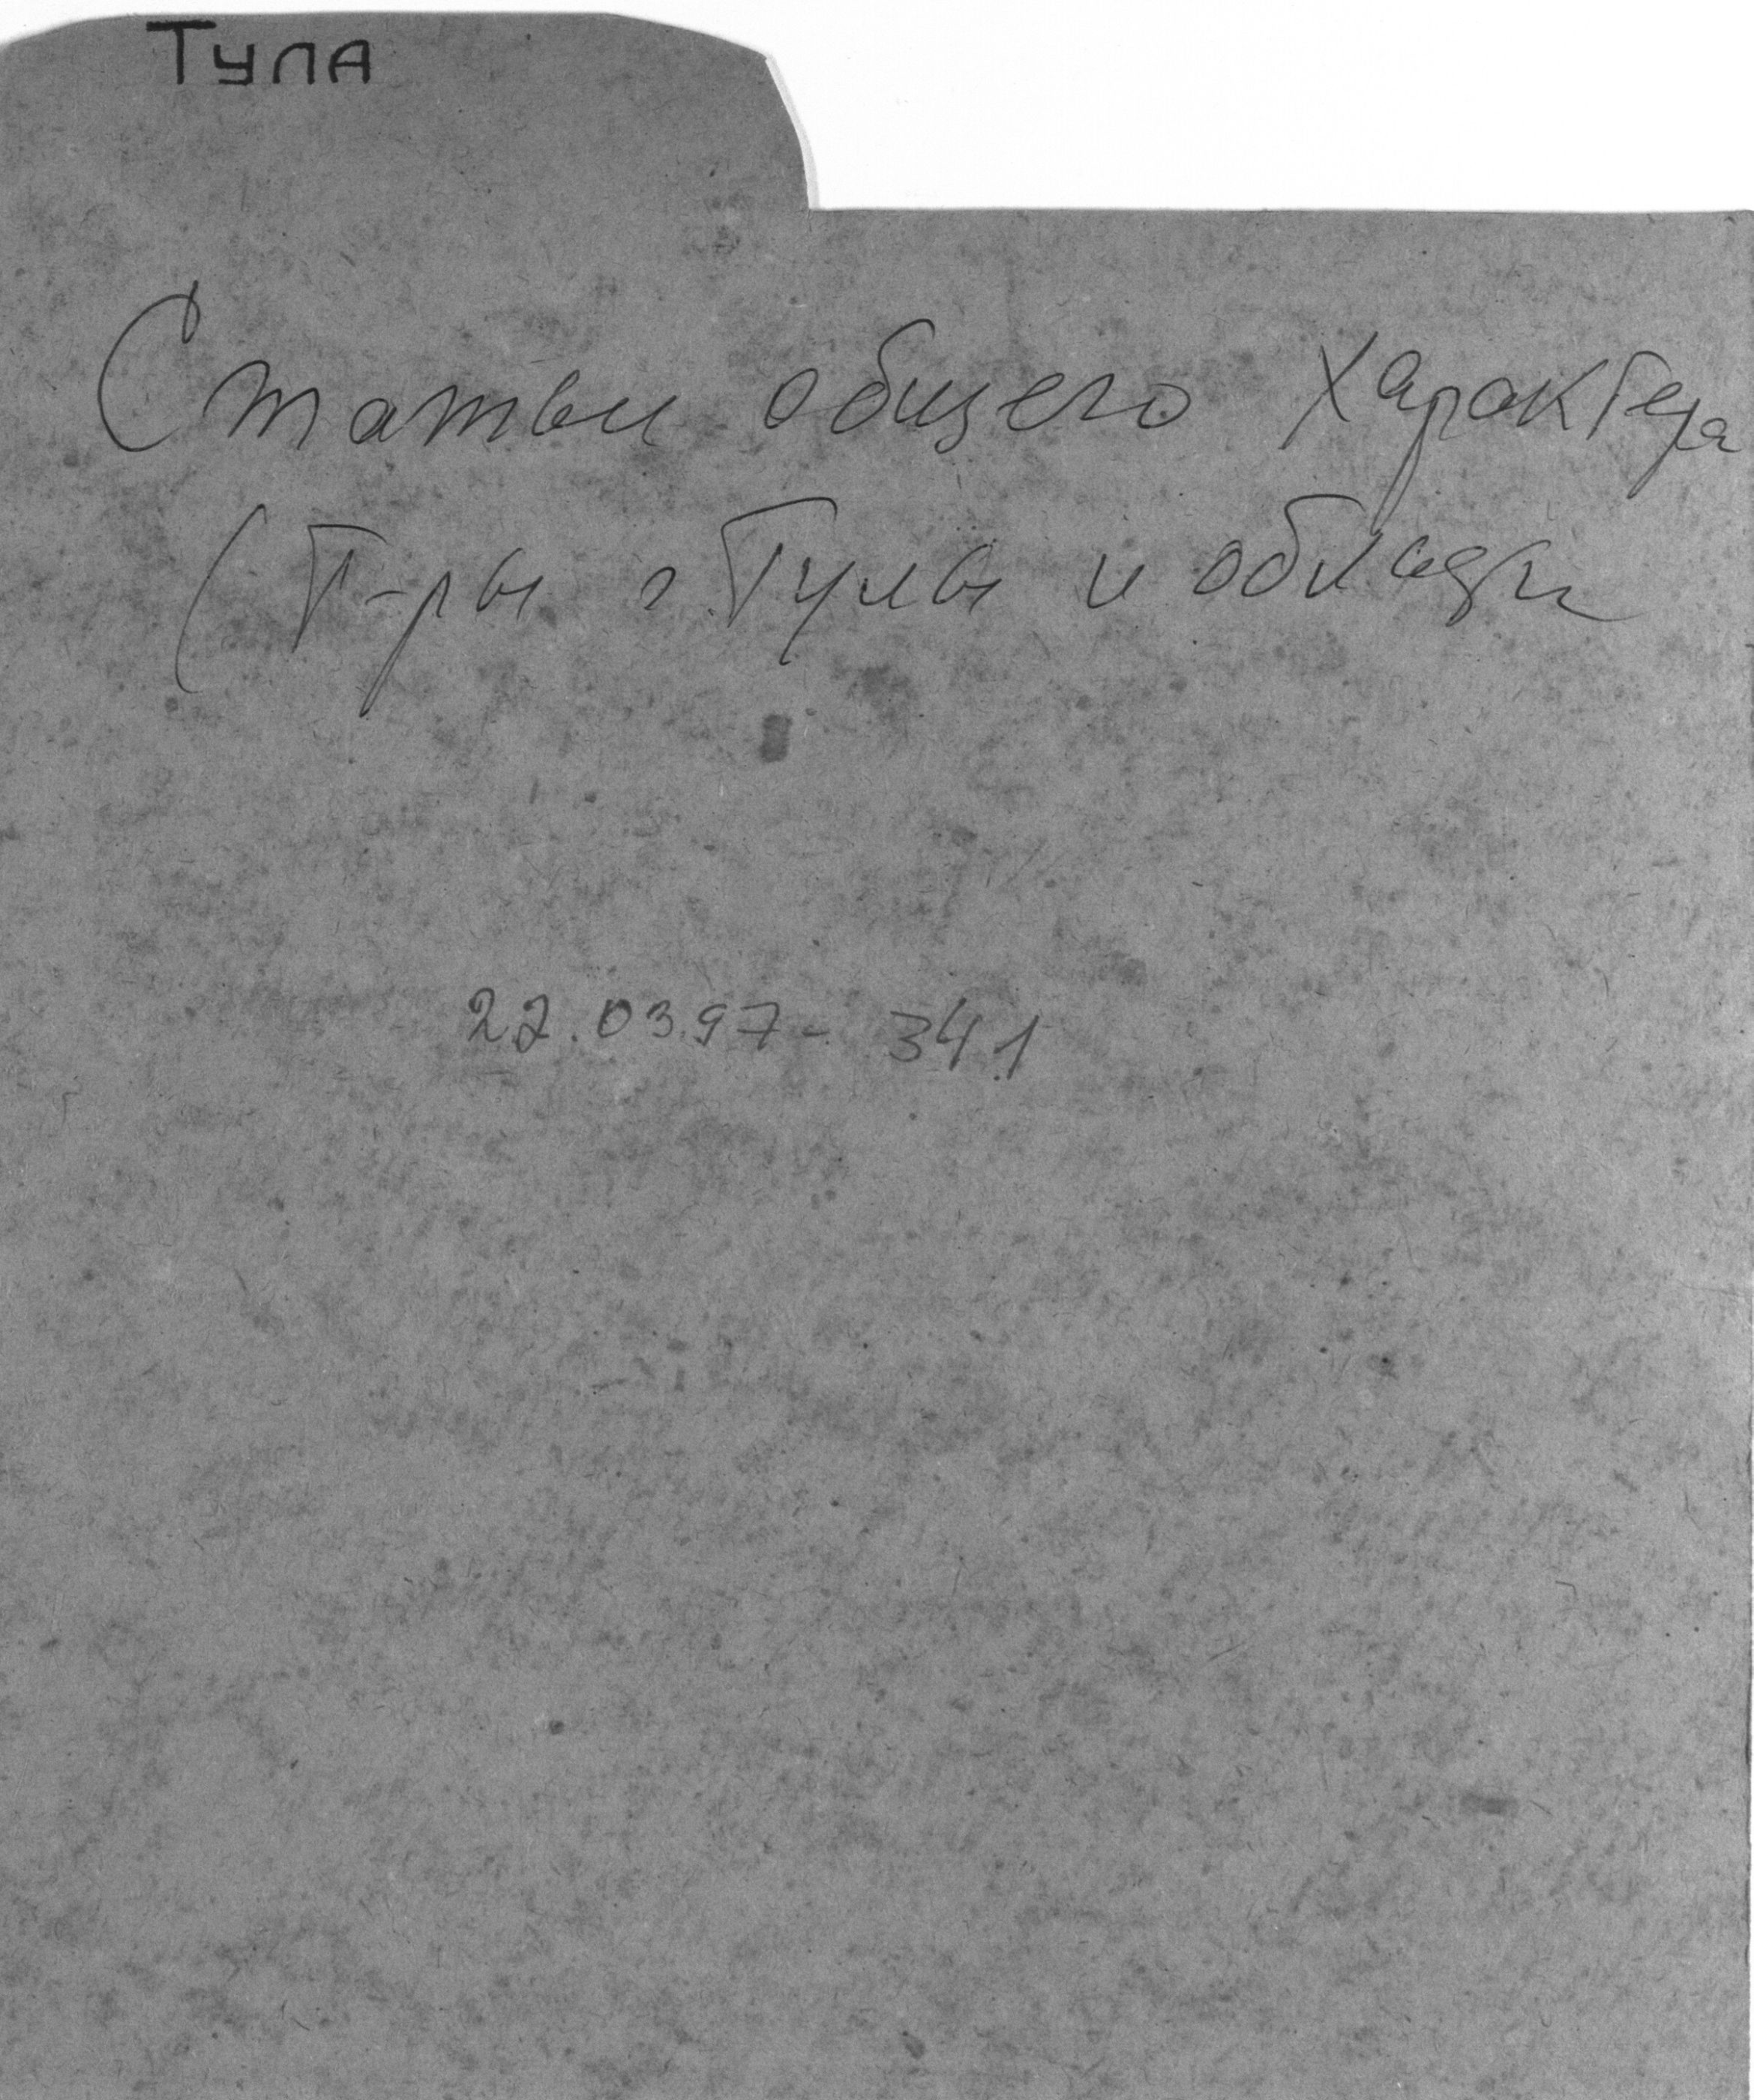 Тула
Статьи общего характера
(Т-ры г. Тулы и области
22.03.97- 341